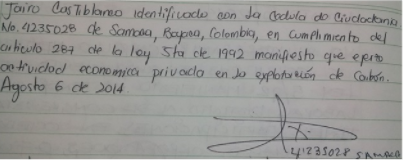 Jairo Castiblanco identificado con la Cedula de Ciudadania
No. 4235028 de Samaca, Boyaca, Colombia, en cumplimiento del
articulo 287 de la ley 5ta de 1992 manifiesto que ejerzo
actividad economica privada en la explotación de Carbón.
Agosto 6 de 2014
4235028 SAMACA